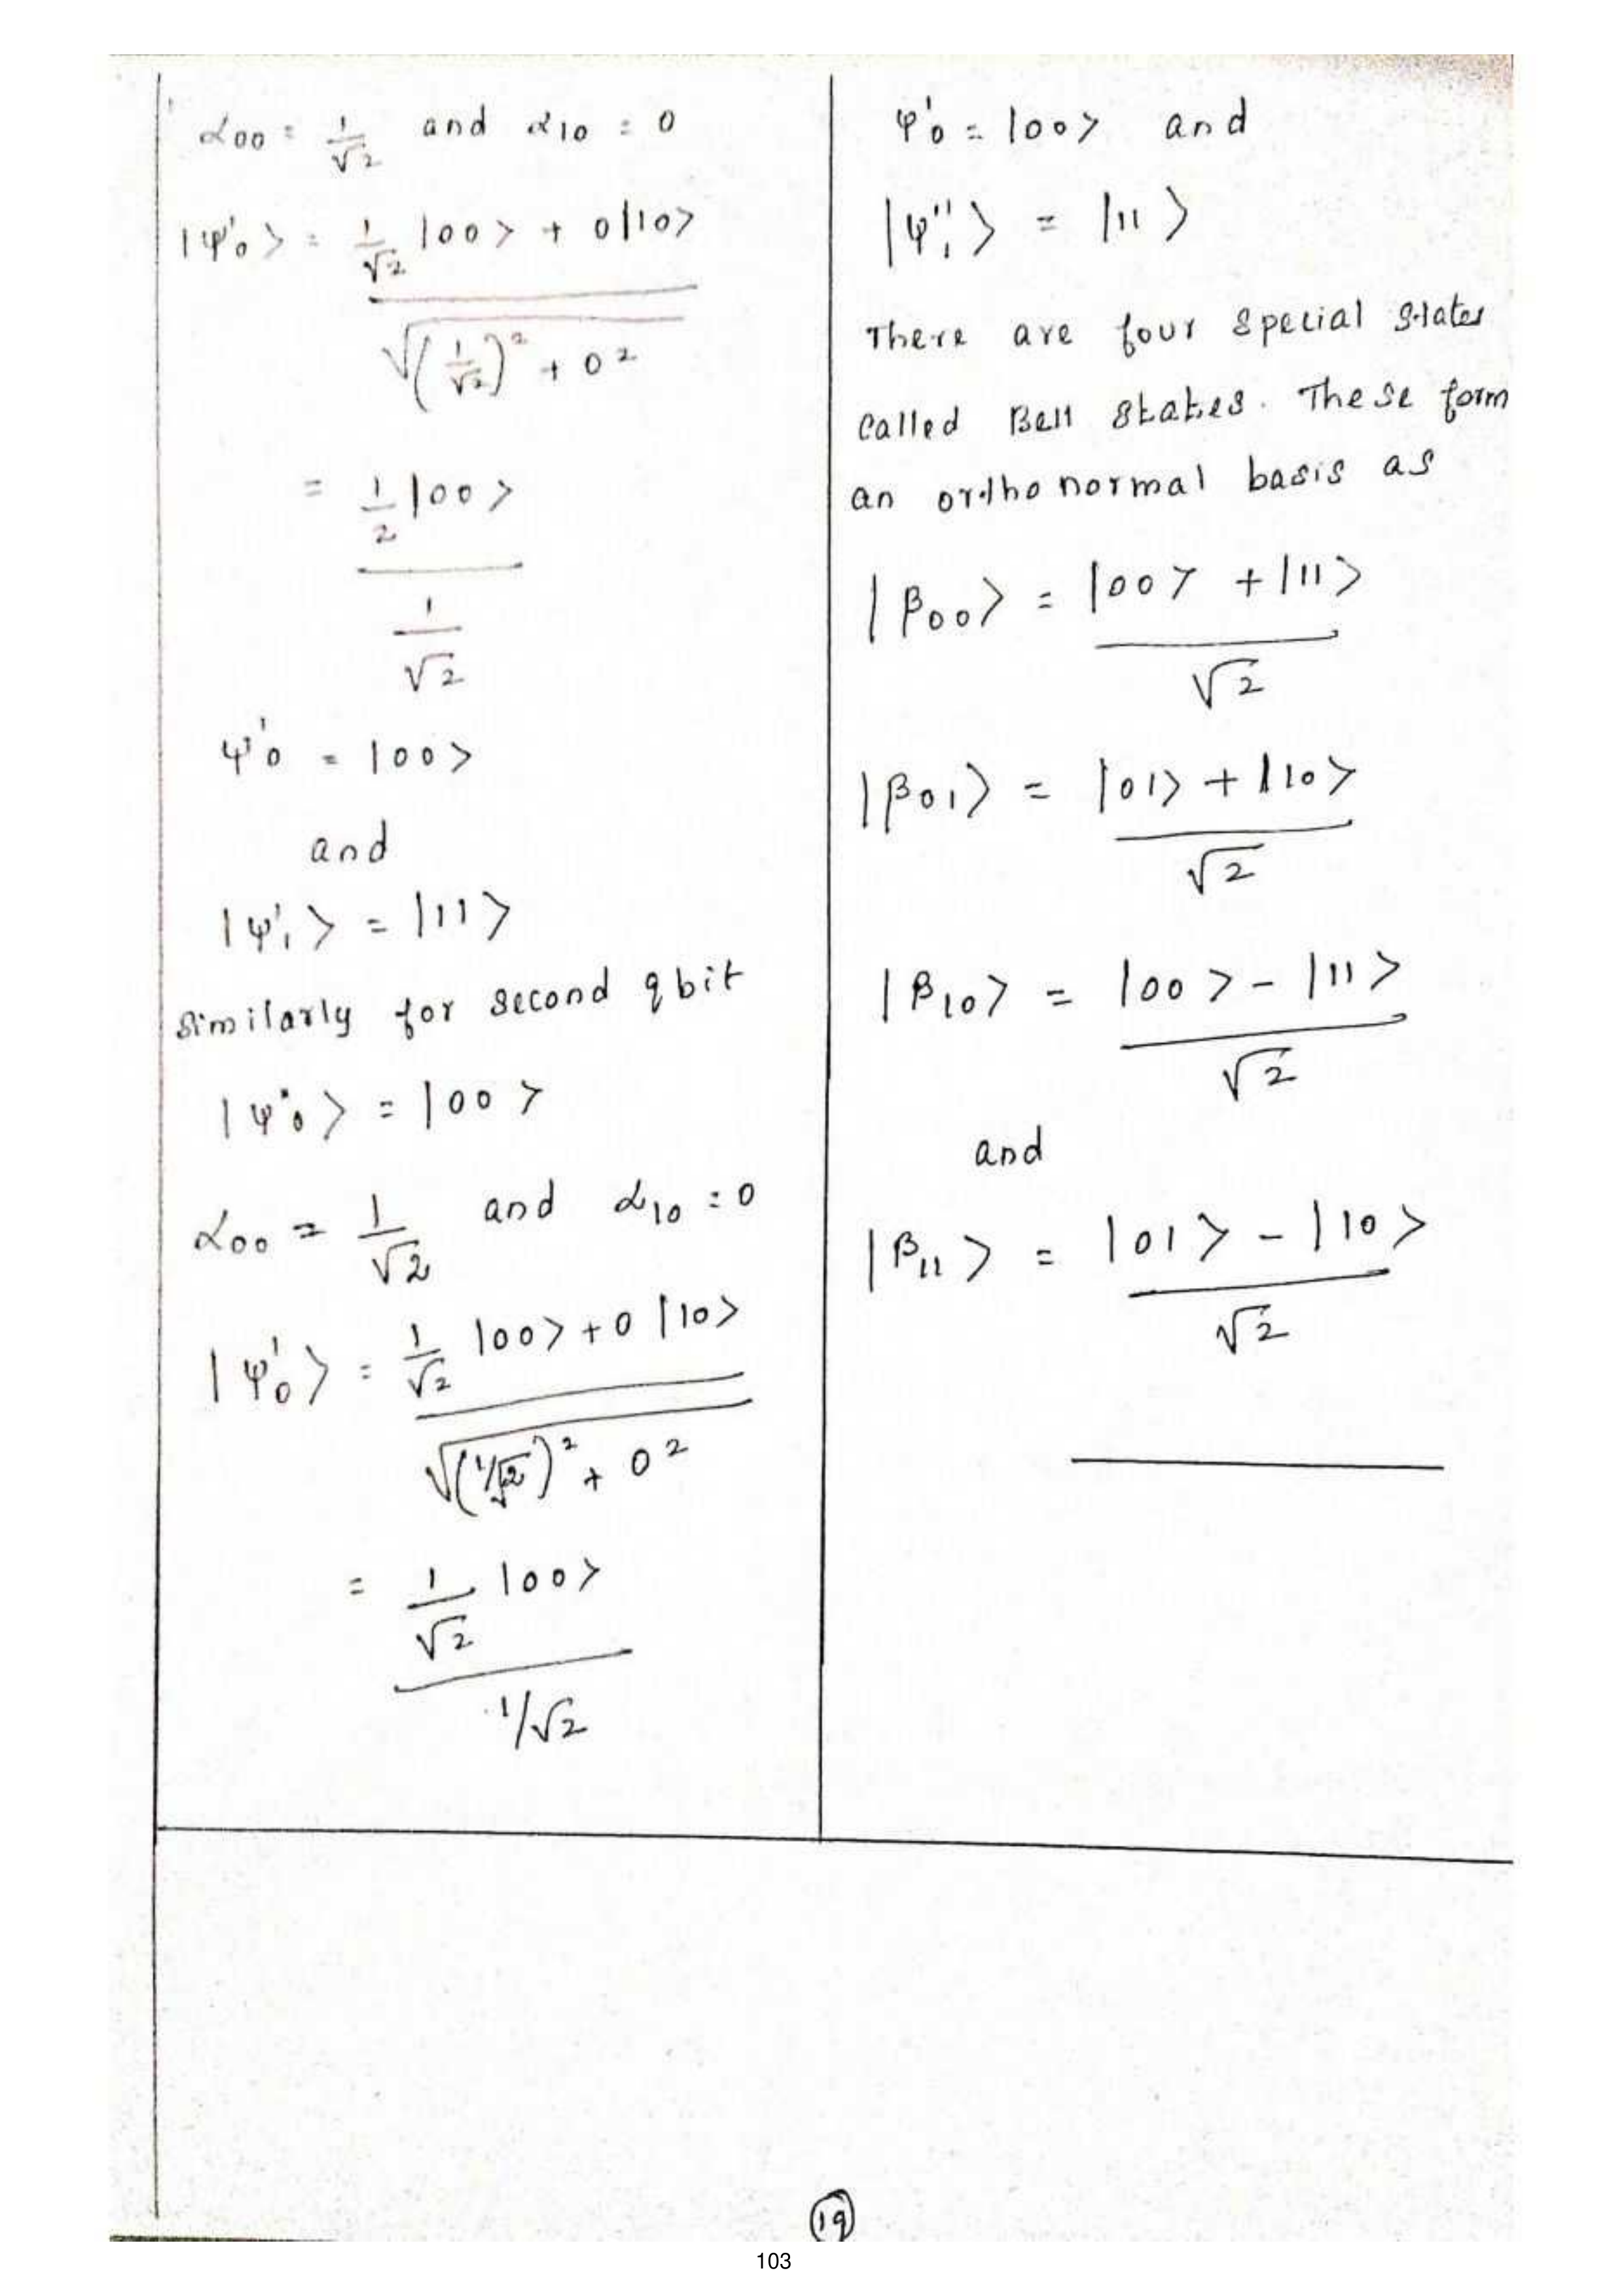 α00 = 1/√2 and α10 = 0
|ψ'0> = 1/√2 |00> + 0|10>
√(1/√2)² + 0²
= 1/2 |00>
1/√2
ψ'0 = |00>
and
|ψ'1> = |11>
Similarly for second qbit
|ψ"0> = |00>
α00 = 1/√2 and α10 = 0
|ψ'0> = 1/√2 |00> + 0 |10>
√(1/√2)² + 0²
= 1/√2 |00>
1/√2
ψ'0 = |00> and
|ψ"1> = |11>
There are four special states
called Bell states. These form
an orthonormal basis as
|β00> = |00> + |11>
√2
|β01> = |01> + |10>
√2
|β10> = |00> - |11>
√2
and
|β11> = |01> - |10>
√2
19
103